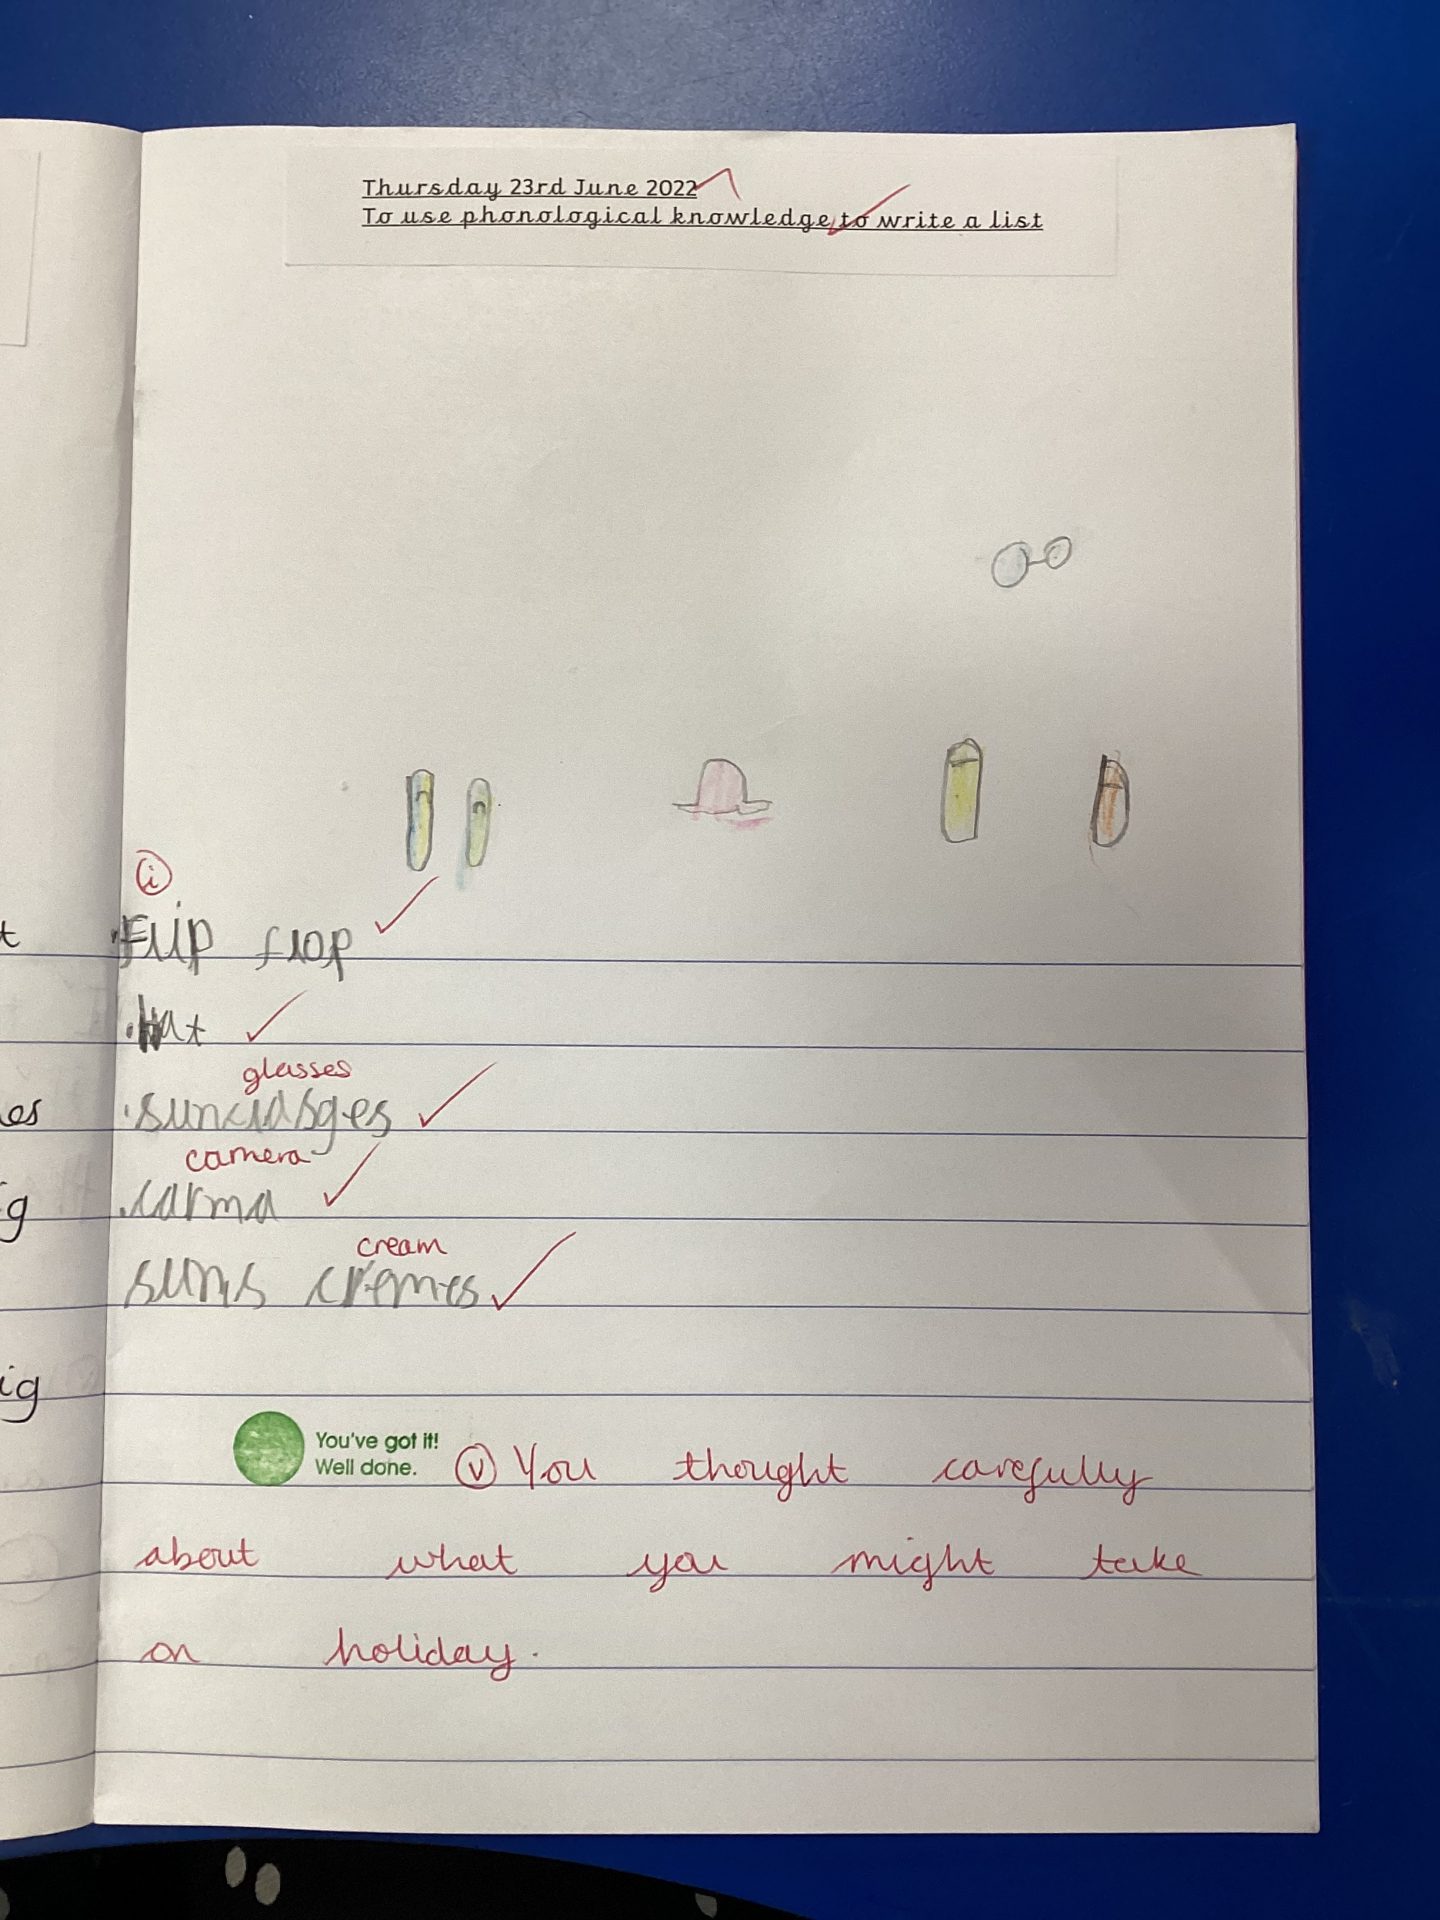 Thursday 23rd June 2022
To use phonological knowledge to write a list
i
t
.Flip flop
.Hat
glasses
es
.sunclasges
camera
g
.carma
cream
suns cremes
ig
You've got it!
Well done.
v You thought carefully
about what you might take
on holiday.